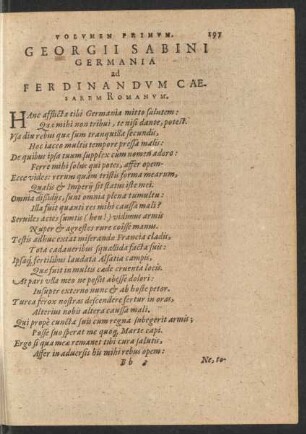 VOLVMEN PRIMVM. 193
GEORGII SABINI
GERMANIA
ad
FERDINANDVM CAE-
SAREM ROMANVM.
HAnc afflicta tibi Germania mitto salutem:
Quæ mihi non tribui, te nisi dante, potest.
Vsa diu rebus quæ sum tranquilla secundis,
Hoc iaceo multis tempore pressa malis:
De quibus ipsa tuum supplex cum nomen adoro:
Ferre mihi solus qui potes, affer opem.
Ecce vides: rerum quàm tristis forma mearum,
Qualis & Imperij sit status iste mei.
Omnia dissidijs, sunt omnia plena tumultu:
Illa fuit quanti res mihi caussa mali?
Seruiles acies sumtis (heu!) vidimus armis
Nuper & agrestes rure coisse manus.
Testis adhuc extat miseranda Francia cladis,
Tota cadaueribus squallida facta suis:
Ipsaq́, fertilibus laudata Alsatia campis,
Quæ fuit in multis cæde cruenta locis.
At pars vlla meo ne posset abesse dolori:
Insuper externo nunc & ab hoste petor.
Turca ferox nostras descendere fertur in oras,
Alterius nobis altera caussa mali.
Qui propè cuncta suis cum regna subegerit armis;
Posse suo sperat me quoq́, Marte capi.
Ergo si qua meæ remanet tibi cura salutis,
Affer in aduersis his mihi rebus opem:
Bb
Ne, to-